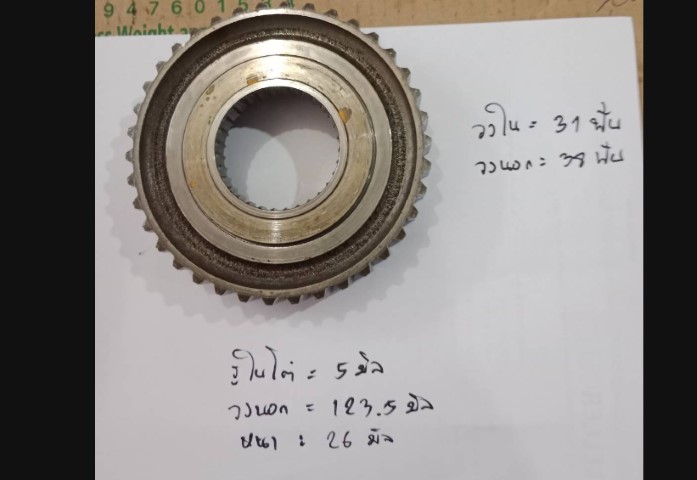 9 4 7 6 0 1 5
ss Weight a
วงใน = 31 ฟัน
วงนอก = 38 ฟัน
รูในโต = 5 มิล
วงนอก = 123.5 มิล
หนา = 26 มิล